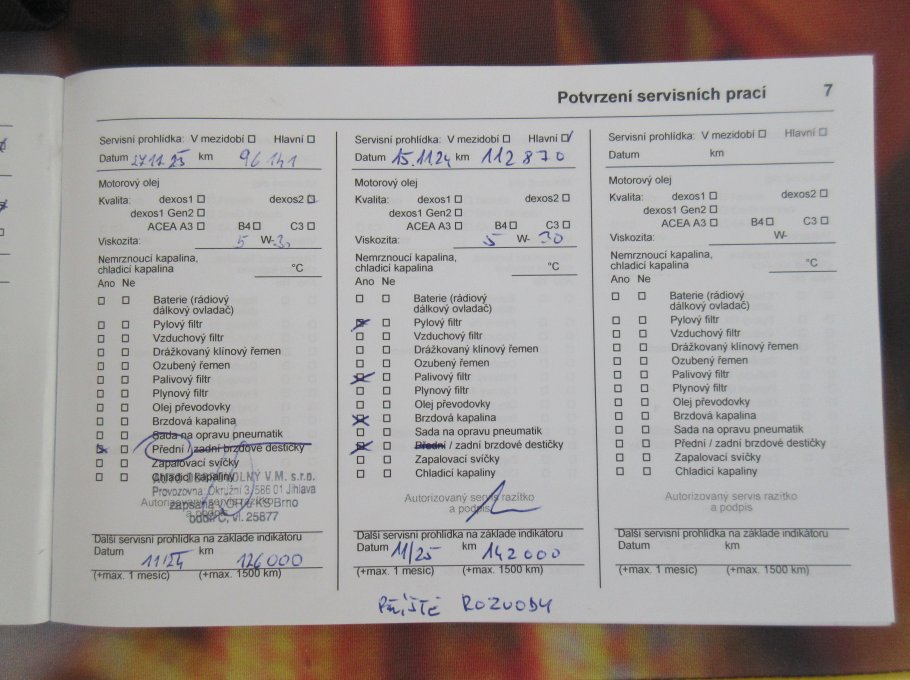 Potvrzení servisních prací 7
Servisní prohlídka: V mezidobí Hlavní
Datum km 96 141
Motorový olej
Kvalita: dexos1 dexos2
dexos1 Gen2
ACEA A3 B4 C3
Viskozita: 5 W-30
Nemrznoucí kapalina,
chladicí kapalina °C
Ano Ne
Baterie (rádiový
dálkový ovladač)
Pylový filtr
Vzduchový filtr
Drážkovaný klínový řemen
Ozubený řemen
Palivový filtr
Plynový filtr
Olej převodovky
Brzdová kapalina
Sada na opravu pneumatik
Přední / zadní brzdové destičky
Zapalovací svíčky
Chladicí kapaliny
V.M. s.r.o.
Provozovna: Okružní 3, 586 01 Jihlava
Autorizovaný servis razítko
a podpis
zapsána v OR u KS Brno
oddíl C, vl. 25877
Další servisní prohlídka na základe indikátoru
Datum 11/24 km 126000
(+max. 1 mesíc) (+max. 1500 km)
Servisní prohlídka: V mezidobí Hlavní
Datum 15.11.24 km 112 870
Motorový olej
Kvalita: dexos1 dexos2
dexos1 Gen2
ACEA A3 B4 C3
Viskozita: 5 W- 30
Nemrznoucí kapalina,
chladicí kapalina °C
Ano Ne
Baterie (rádiový
dálkový ovladač)
Pylový filtr
Vzduchový filtr
Drážkovaný klínový řemen
Ozubený řemen
Palivový filtr
Plynový filtr
Olej převodovky
Brzdová kapalina
Sada na opravu pneumatik
Přední / zadní brzdové destičky
Zapalovací svíčky
Chladicí kapaliny
Autorizovaný servis razítko
a podpis
Další servisní prohlídka na základe indikátoru
Datum 11/25 km 142000
(+max. 1 mesíc) (+max. 1500 km)
PŘÍŠTĚ ROZVODY
Servisní prohlídka: V mezidobí Hlavní
Datum km
Motorový olej
Kvalita: dexos1 dexos2
dexos1 Gen2
ACEA A3 B4 C3
Viskozita: W-
Nemrznoucí kapalina,
chladicí kapalina °C
Ano Ne
Baterie (rádiový
dálkový ovladač)
Pylový filtr
Vzduchový filtr
Drážkovaný klínový řemen
Ozubený řemen
Palivový filtr
Plynový filtr
Olej převodovky
Brzdová kapalina
Sada na opravu pneumatik
Přední / zadní brzdové destičky
Zapalovací svíčky
Chladicí kapaliny
Autorizovaný servis razítko
a podpis
Další servisní prohlídka na základe indikátoru
Datum km
(+max. 1 mesíc) (+max. 1500 km)